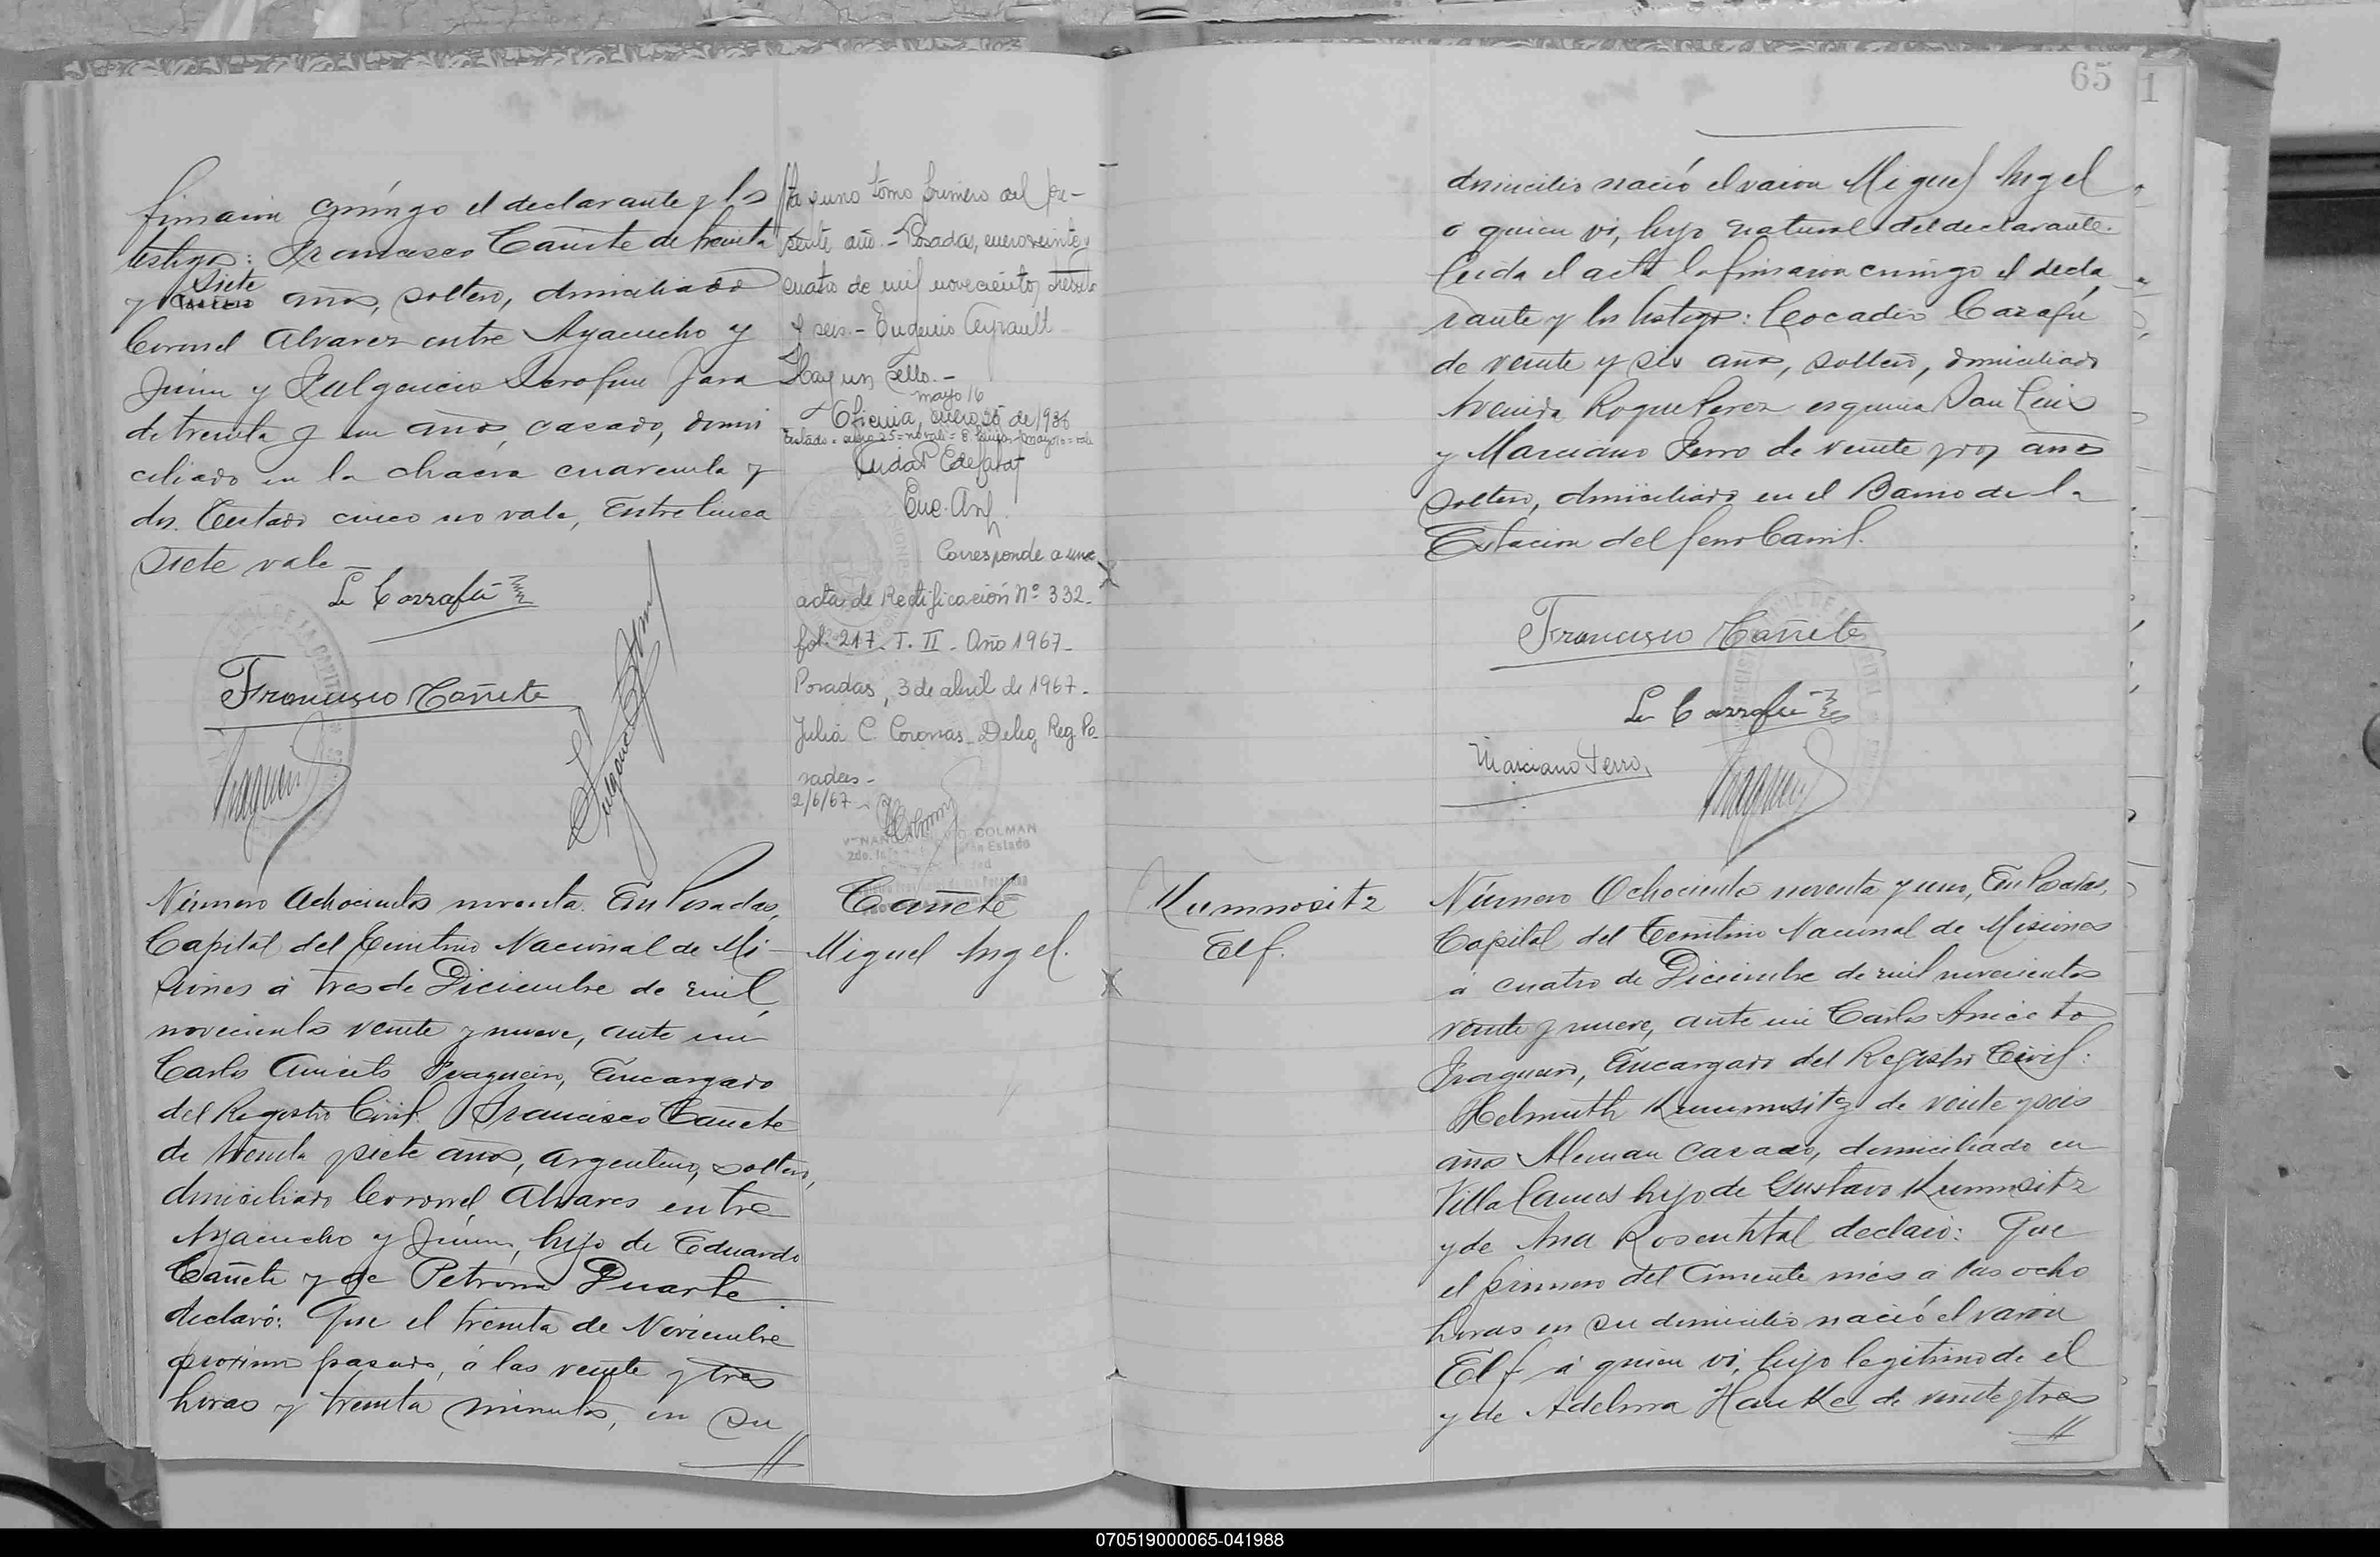 firmaron conmigo el declarante y los
testigos: Francisco Cañete de treinta
siete
y cinco años, soltero, domiciliado
Coronel Alvarez entre Ayacucho y
Junin y Fulgencio Serafin Jara
de treinta y un años, casado, domi
ciliado en la chacra cuarenta y
dos. Testado cinco no vale, Entre linea
siete vale
L. Carrafú
Francisco Cañete
Número Ochocientos noventa. En Posadas,
Capital del Territorio Nacional de Mi-
siones á tres de Diciembre de mil
novecientos veinte y nueve, ante mi
Carlos Aniceto Fragueiro, Encargado
del Registro Civil. Francisco Cañete
de treinta y siete años, argentino, soltero,
domiciliado Coronel Alvares entre
Ayacucho y Junin, hijo de Eduardo
Cañete y de Petrona Duarte
declaró: Que el treinta de Noviembre
proximo pasado, á las veinte y tres
horas y treinta minutos, en su
//
y uno tomo primero del pre-
sente año.- Posadas, enero veinte y
cuatro de mil novecientos treinta
y seis.- Eugenio
Hay un sello.-
mayo 16
Oficina, enero 25 de 1936
Enc.
Corresponde a una
acta de Rectificación Nº 332-
fol. 217- T. II - Año 1967-
Posadas, 3 de abril de 1967-
Julia C. Coronas- Deleg Reg. Po-
sadas-
2/6/67-
COLMAN
Cañete
Miguel Angel.
65
1
domicilio nació el varon Miguel Angel
á quien vi, hijo natural del declarante.
Leida el acta la firmaron conmigo el decla
rante y los testigos: Leocadio Carafú
de veinte y seis años, soltero, domiciliado
Avenida Roque Perez esquina San Luis
y Marciano Ferro de veinte y dos años
soltero, domiciliado en el Barrio de la
Estacion del ferro Carril.
Francisco Cañete
L. Carrafú
Marciano Ferro
Kummositz
Elf.
Número Ochocientos noventa y uno, En Posadas,
Capital del Territorio Nacional de Misiones
á cuatro de Diciembre de mil novecientos
veinte y nueve, ante mi Carlos Aniceto
Fragueiro, Encargado del Registro Civil:
Helmuth Kummositz de veinte y seis
años Aleman casado, domiciliado en
Villa Lanus hijo de Gustavo Kummositz
y de Ana Rosenthal declaró: Que
el primero del corriente mes á las ocho
horas en su domicilio nació el varon
Elf á quien vi, hijo legitimo de él
y de Adelma Hanke de veinte y tres
//
070519000065-041988